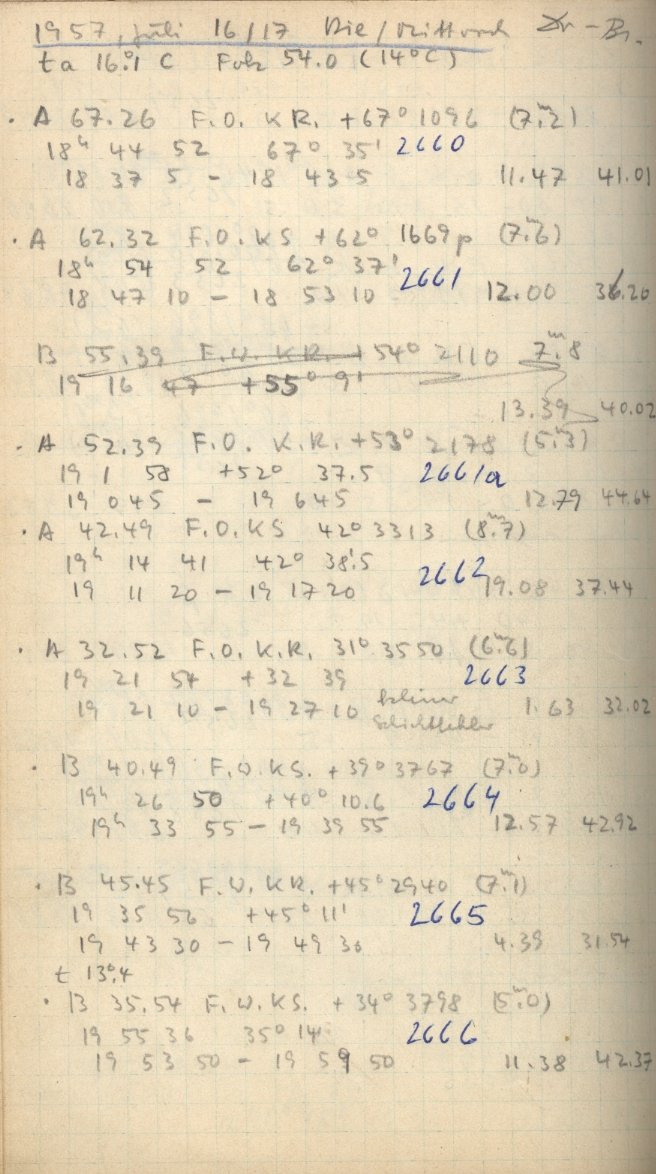 1957, Juli 16/17 Die/Mittwoch Dr-Br.
ta 16°.1 C Fok 54.0 (14°C)
· A 67.26 F.O. KR. +67° 1096 (7ᵐ.2)
18ʰ 44 52 67° 35' 2660
18 37 5 - 18 43 5 11.47 41.01
· A 62.32 F.O. KS +62° 1669p (7ᵐ.6)
18ʰ 54 52 62° 37' 2661
18 47 10 - 18 53 10 12.00 36.20
B 55.39 F.W. KR. +54° 2110 7ᵐ.8
19 16 47 +55° 9'
13.39 40.02
· A 52.39 F.O. K.R. +53° 2178 (5ᵐ.3)
19 1 58 +52° 37.5 2661a
19 0 45 - 19 6 45 12.79 44.64
· A 42.49 F.O. KS 42° 3313 (8ᵐ.7)
19ʰ 14 41 42° 38'.5 2662
19 11 20 - 19 17 20 19.08 37.44
· A 32.52 F.O. K.R. 31° 3550 (6ᵐ.6)
19 21 54 +32 39 2663
19 21 10 - 19 27 10 kleiner Schichtfehler 1.63 32.02
· B 40.49 F.W. KS. +39° 3767 (7ᵐ.0)
19ʰ 26 50 +40° 10.6 2664
19ʰ 33 55 - 19 39 55 12.57 42.92
· B 45.45 F.W. KR. +45° 2940 (7ᵐ.1)
19 35 56 +45° 11' 2665
19 43 30 - 19 49 30 4.39 31.54
t 13°.4
· B 35.54 F.W. KS. +34° 3798 (5ᵐ.0)
19 55 36 35° 14' 2666
19 53 50 - 19 59 50 11.38 42.37